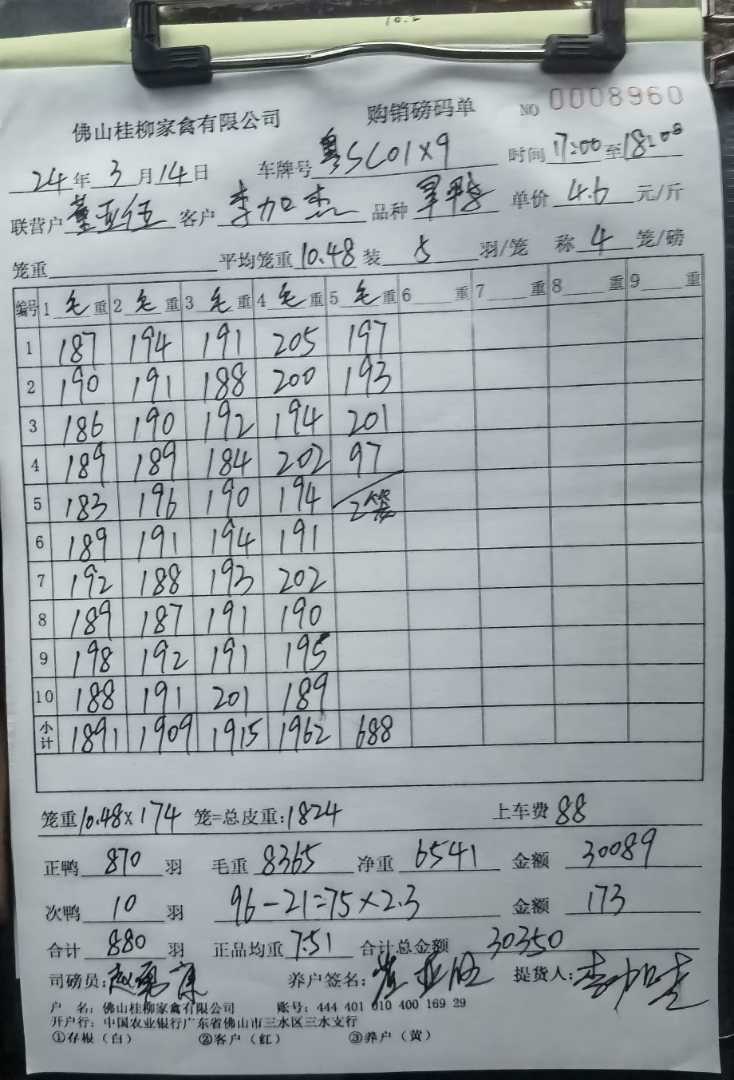 佛山桂柳家禽有限公司 购销磅码单 NO 0008960
24年3月14日 车牌号粤SC01X9 时间17:00至18:08
联营户董亚伍 客户李加杰 品种 单价4.6元/斤
笼重 平均笼重10.48装5羽/笼 称4笼/磅
编号 1毛重 2毛重 3毛重 4毛重 5毛重 6重 7重 8重 9重
1 187 194 191 205 197
2 190 191 188 200 193
3 186 190 192 194 201
4 189 189 184 202 97
5 183 196 190 194 2笼
6 189 191 194 191
7 192 188 193 202
8 189 187 191 190
9 198 192 191 195
10 188 191 201 189
小计 1891 1909 1915 1962 688
笼重10.48×174笼=总皮重:1824 上车费88
正鸭870羽 毛重8365净重6541 金额30089
次鸭10羽 96-21=75×2.3 金额173
合计880羽 正品均重7.51 合计总金额30350
司磅员: 养户签名:董亚伍 提货人:李加杰
户 名:佛山桂柳家禽有限公司 账号:444 401 010 400 169 29
开户行:中国农业银行广东省佛山市三水区三水支行
①存根(白) ②客户(红) ③养户(黄)